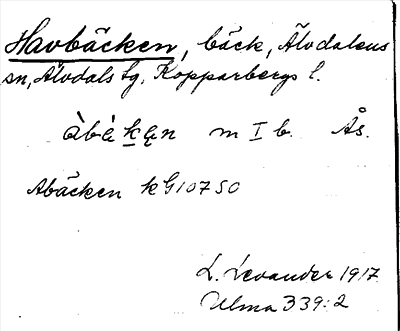 Havbäcken, bäck, Älvdalens
sn, Älvdals tg, Kopparbergs l.
àbä̀kęn m I b. Ås.
Abäcken kG10750
L. Levander 1917
Ulma 339:2